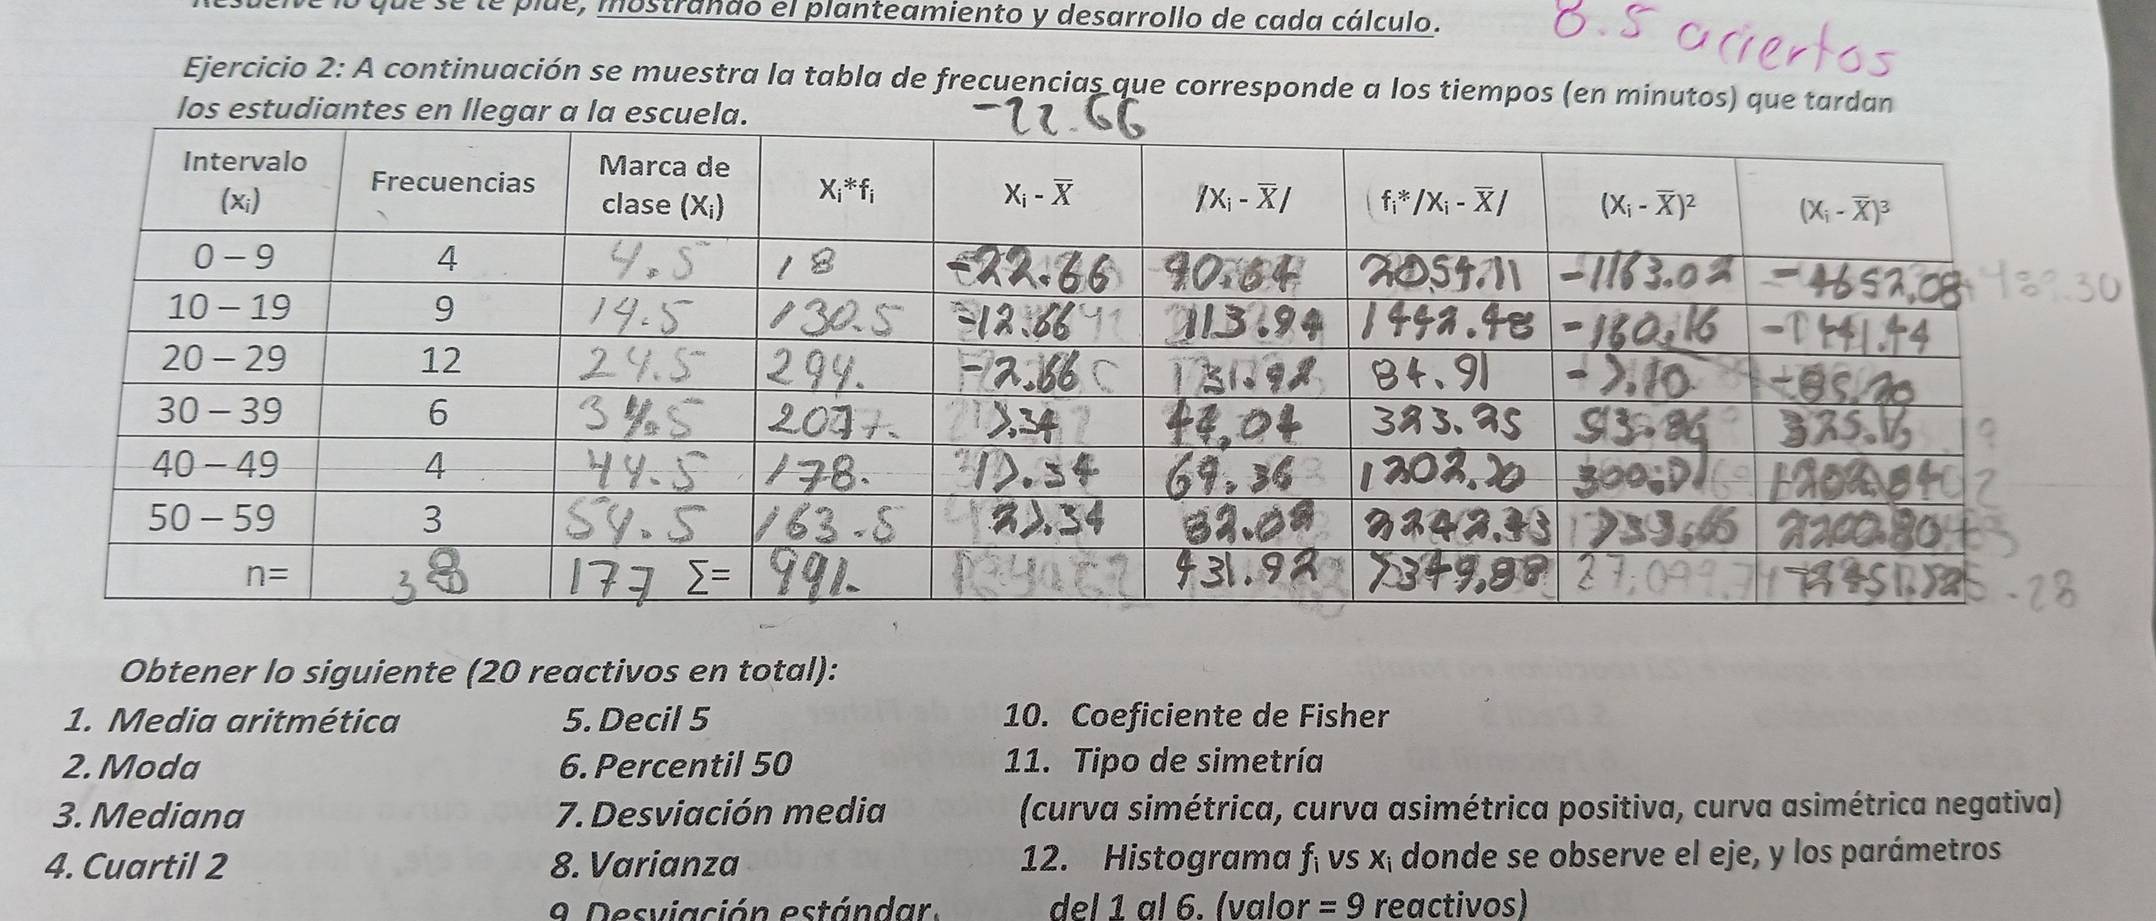 mostrando el planteamiento y desarrollo de cada cálculo.
8.5 aciertos
Ejercicio 2: A continuación se muestra la tabla de frecuencias que corresponde a los tiempos (en minutos) que tardan
los estudiantes en llegar a la escuela.
-22.66
Intervalo (xᵢ) Frecuencias Marca de clase (Xᵢ) Xᵢ*fᵢ Xᵢ - X̅ /Xᵢ - X̅/ fᵢ*/Xᵢ - X̅/ (Xᵢ - X̅)² (Xᵢ - X̅)³
0 – 9 4 4.5 18 -22.66 90.64 2054.11 -1163.02 -4652.08
10 – 19 9 14.5 130.5 -12.66 113.94 1442.48 -160.16 -1441.44
20 – 29 12 24.5 294. -2.66 31.92 84.91 -7.10 -85.20
30 – 39 6 34.5 207. 7.34 44.04 323.25 325.16
40 – 49 4 44.5 178. 17.34 69.36 1202.20
50 – 59 3 54.5 163.5 27.34 82.02 2242.43 2200.80
n= 38 177 Σ= 991. 431.92
Obtener lo siguiente (20 reactivos en total):
1. Media aritmética
2. Moda
3. Mediana
4. Cuartil 2
5. Decil 5
6. Percentil 50
7. Desviación media
8. Varianza
9. Desviación estándar.
10. Coeficiente de Fisher
11. Tipo de simetría
(curva simétrica, curva asimétrica positiva, curva asimétrica negativa)
12. Histograma fᵢ vs xᵢ donde se observe el eje, y los parámetros
del 1 al 6. (valor = 9 reactivos)